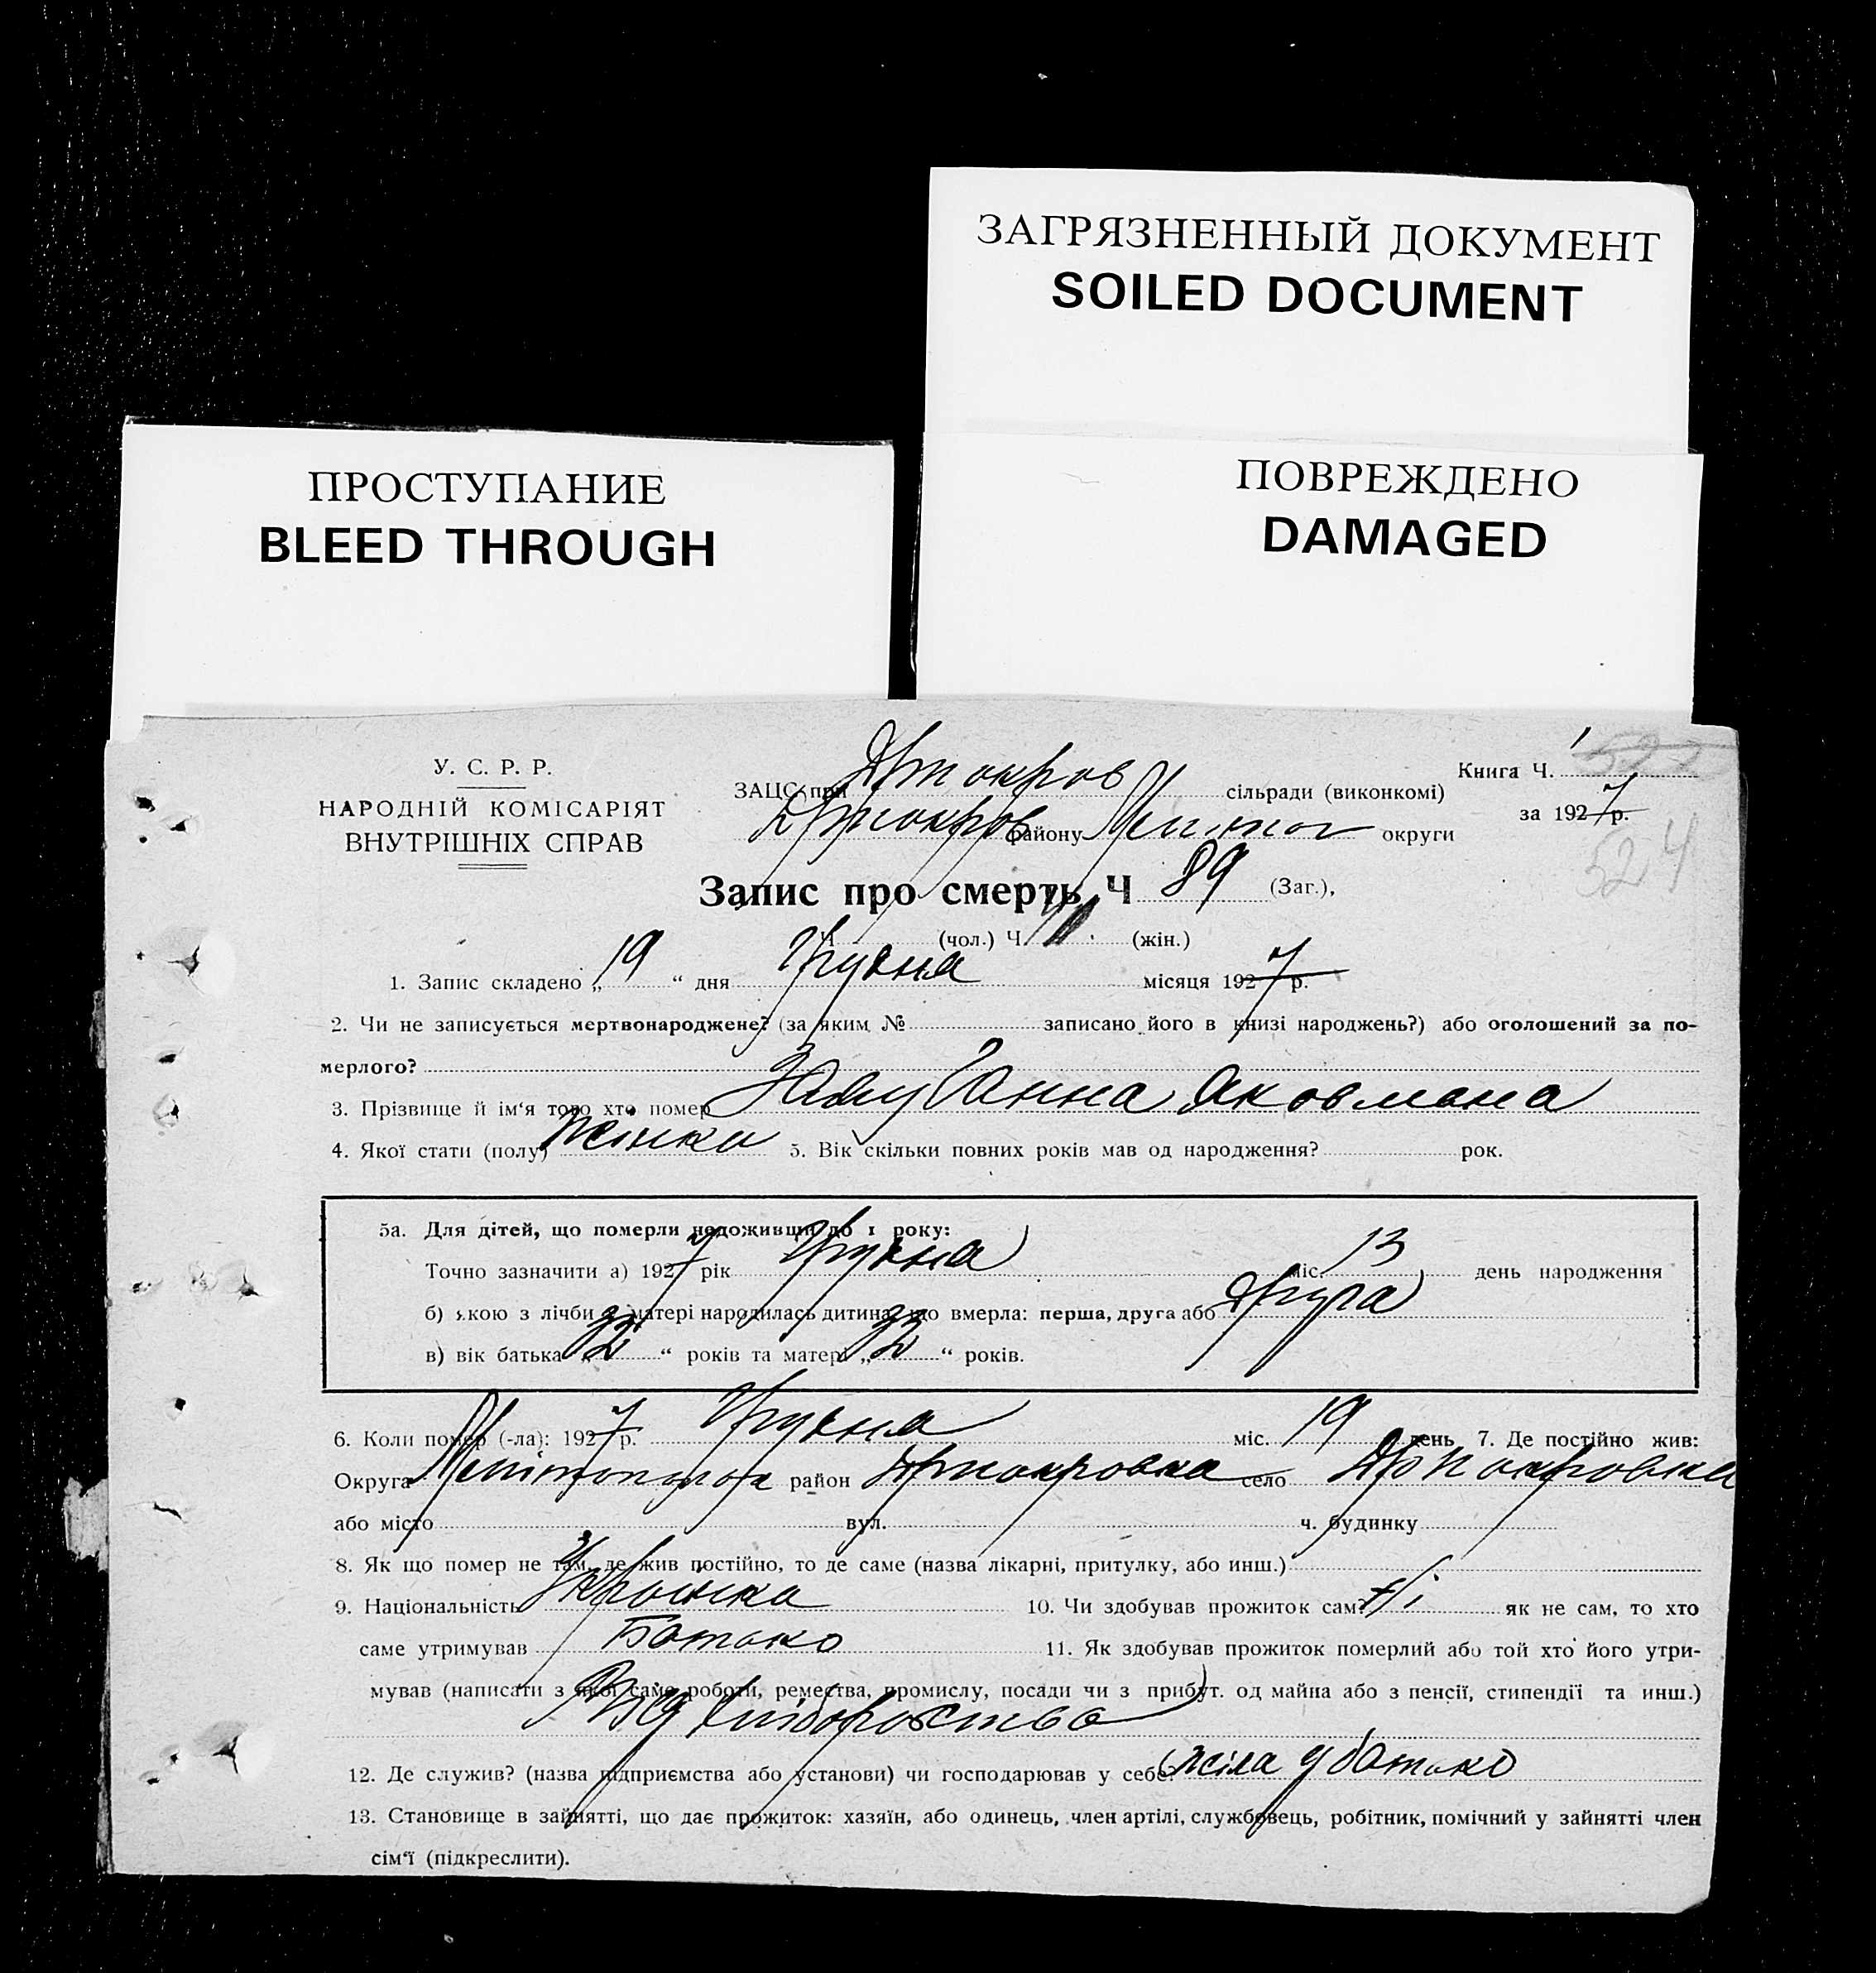 ЗАГРЯЗНЕННЫЙ ДОКУМЕНТ
SOILED DOCUMENT
ПРОСТУПАНИЕ
BLEED THROUGH
ПОВРЕЖДЕНО
DAMAGED
У. С. Р. Р.
НАРОДНІЙ КОМІСАРІЯТ
ВНУТРІШНІХ СПРАВ
ЗАЦС при сільради (виконкомі)
району округи
Книга Ч.
за 1927 р.
524
Запис про смерть Ч 89 (Заг.),
Ч. (чол.) Ч. (жін.)
1. Запис складено „ 19 “ дня Грудня місяця 1927 р.
2. Чи не записується мертвонароджене? (за яким № записано його в книзі народжень?) або оголошений за по-
мерлого?
3. Прізвище й ім'я того хто помер Ганна Яковлевна
4. Якої стати (полу) Жінка 5. Вік скільки повних років мав од народження? рок.
5а. Для дітей, що померли недоживши до 1 року:
Точно зазначити а) 1927 рік Грудня міс. 13 день народження
б) якою з лічби у матері народилась дитина, що вмерла: перша, друга або Друга
в) вік батька „ 32 “ років та матері „ 32 “ років.
6. Коли помер (-ла): 1927 р. Грудня міс. 19 день 7. Де постійно жив:
Округа район село
або місто вул. ч. будинку
8. Як що помер не там, де жив постійно, то де саме (назва лікарні, притулку, або инш.)
9. Національність Українка 10. Чи здобував прожиток сам? Ні як не сам, то хто
саме утримував Батько 11. Як здобував прожиток померлий або той хто його утри-
мував (написати з якої саме роботи, ремества, промислу, посади чи з прибут. од майна або з пенсії, стипендії та инш.)
Від хліборобства
12. Де служив? (назва підприємства або установи) чи господарював у себе? жіла у батько
13. Становище в зайнятті, що дає прожиток: хазяїн, або одинець, член артілі, службовець, робітник, помічний у зайнятті член
сім'ї (підкреслити).